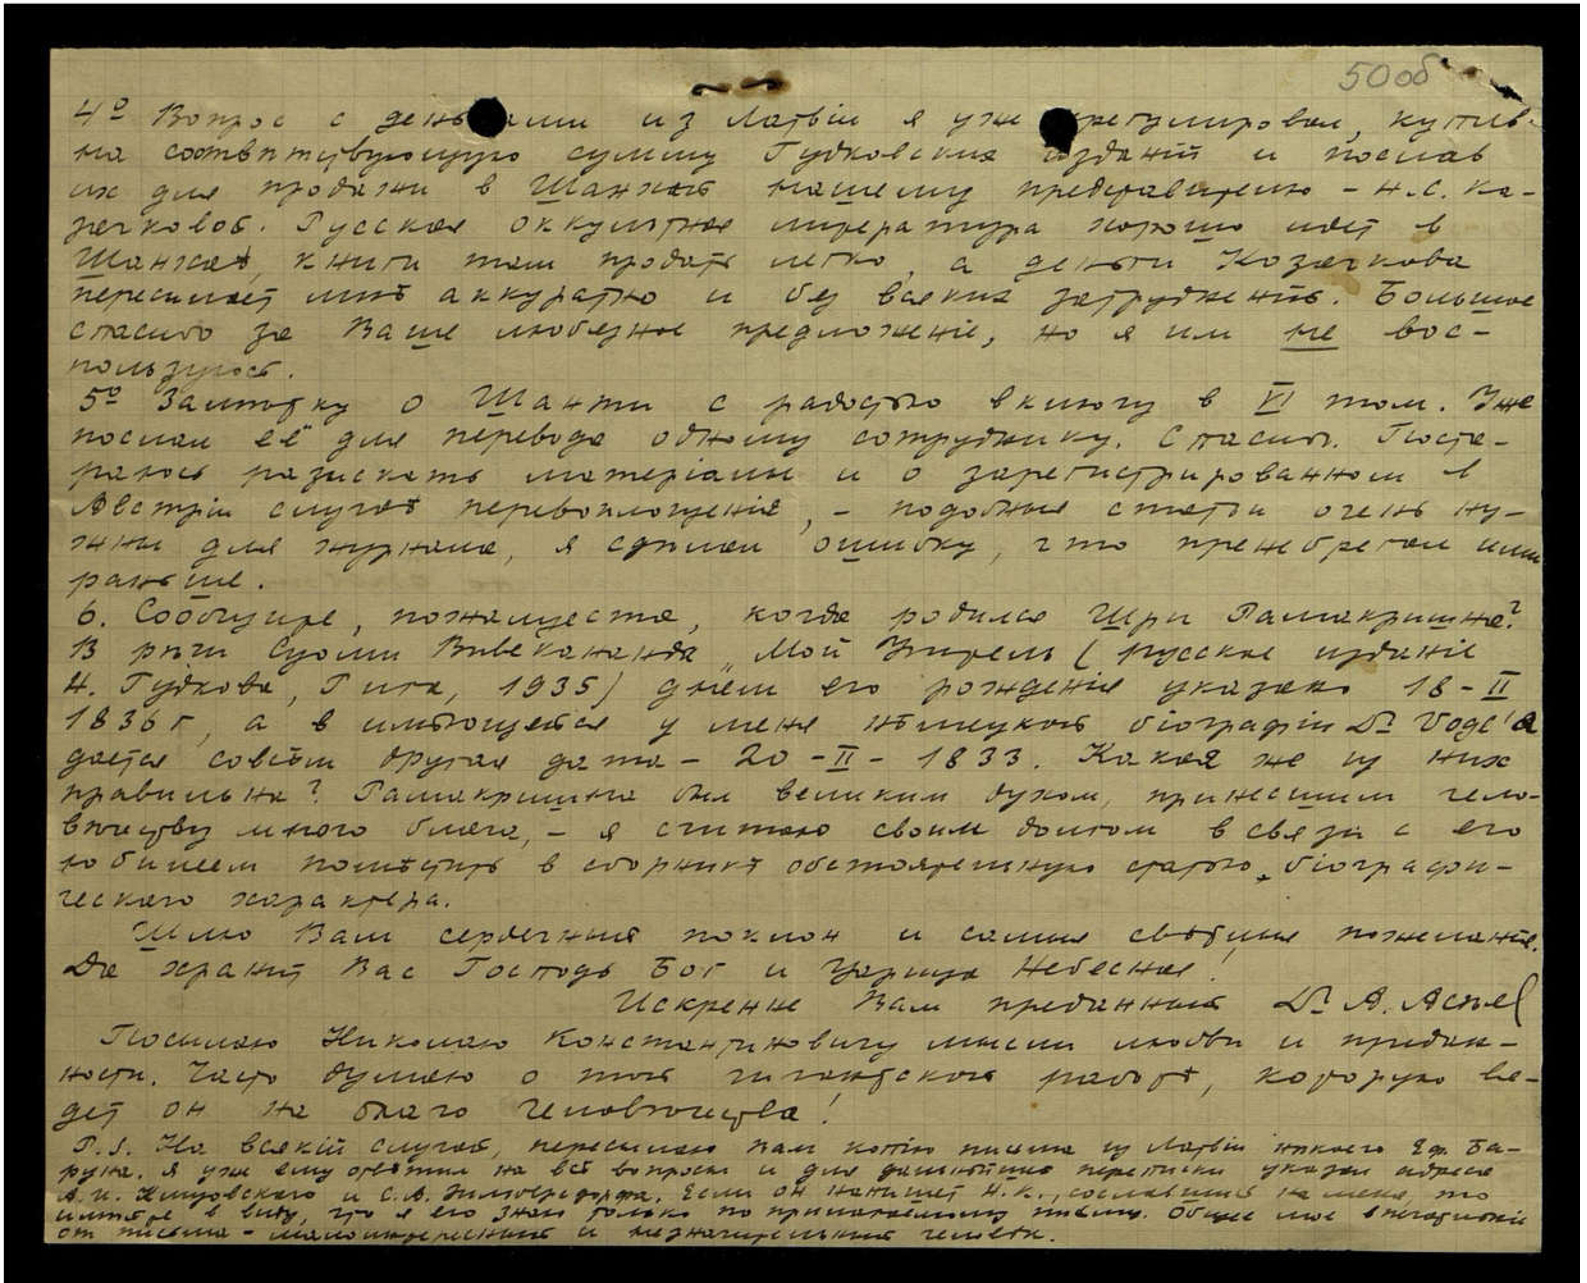 50об
4º Вопрос с деньгами из Латвіи я уже урегулировал, купив
на соотвѣтствующую сумму Гудковских изданій и послав
их для продажи в Шанхай нашему представителю – Н.С. Ка-
зачковой. Русская оккультная литература хорошо идет в
Шанхаѣ, книги там продать легко, а деньги Козачкова
пересылает мнѣ аккуратно и без всяких затрудненій. Большое
спасибо за Ваше любезное предложеніе, но я им не вос-
пользуюсь.
5º Замѣтку о Шанти с радостью включу в VI том. Уже
послал её для перевода одному сотруднику. Спасибо. Поста-
раюсь разыскать матеріалы и о зарегистрированном в
Австріи случаѣ перевоплощенія, – подобные статьи очень ну-
жны для журнала, я сдѣлал ошибку, что пренебрегал ими
раньше.
6. Сообщите, пожалуйста, когда родился Шри Рамакришна?
В рѣчи Суоми Вивекананда „Мой Учитель (русское изданіе
Н. Гудкова, Рига, 1935) днём его рожденія указано 18-II
1836 г, а в имѣющейся у меня нѣмецкой біографіи Dr Vogl'a
дается совсѣм другая дата – 20-II-1833. Какая же из них
правильна? Рамакришна был великим духом, принесшим чело-
вѣчеству много блага, – я считаю своим долгом в связи с его
юбилеем помѣстить в сборникѣ обстоятельную статью біографи-
ческаго характера.
Шлю Вам сердечный поклон и самые свѣтлые пожеланія.
Да хранит Вас Господь Бог и Царица Небесная!
Искренне Вам преданный Dr А. Асѣев
Посылаю Николаю Константиновичу мысли любви и предан-
ности. Часто думаю о той гигантской работѣ, которую ве-
дет он на благо человѣчества!
P.S. На всякій случай, пересылаю Вам копію письма из Латвіи нѣкоего Еф. Ба-
руна. Я уже ему отвѣтил на всѣ вопросы и для дальнѣйшей переписки указал адреса
А.И. Клизовскаго и С.А. Если он напишет Н.К., сославшись на меня, то
имѣйте в виду, что я его знаю только по прилагаемому письму. Общее мое впечатлѣніе
от письма – малоинтересный и незначительный человѣк.